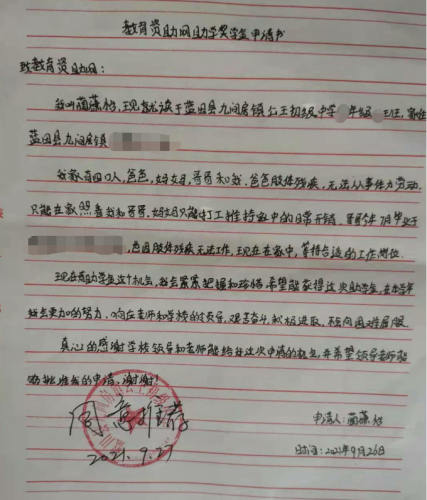 教育资助网助学奖学金申请书
致教育资助网:
我叫蔺藻怡,现就读于蓝田县九间房镇公王初级中学 年级 班,家住
蓝田县九间房镇
我家有四口人,爸爸,妈妈,哥哥和我,爸爸肢体残疾,无法从事体力劳动,
只能在家照看我和哥哥.妈妈只能打工维持家中的日常开销.哥哥今年7月毕业于
,也因肢体残疾无法工作,现在在家中,等待合适的工作岗位.
现在资助学金这个机会,我会紧紧把握和珍惜.希望能获得这次助学金,在中学
我会更加的努力,不向任老师和学校的 ,艰苦奋斗,积极进取,不向困难屈服
真心的感谢学校领导和老师能给我这次申请的机会,并希望领导老师能
批准我的申请.谢谢!
同意推荐
2021.9.27
申请人:
时间:2021年9月26日